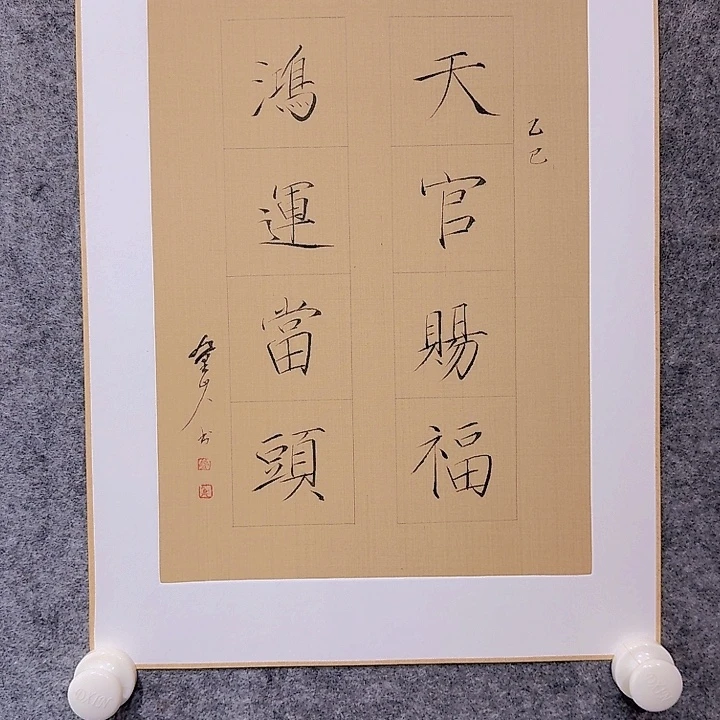 乙巳
天官賜福
鴻運當頭
书